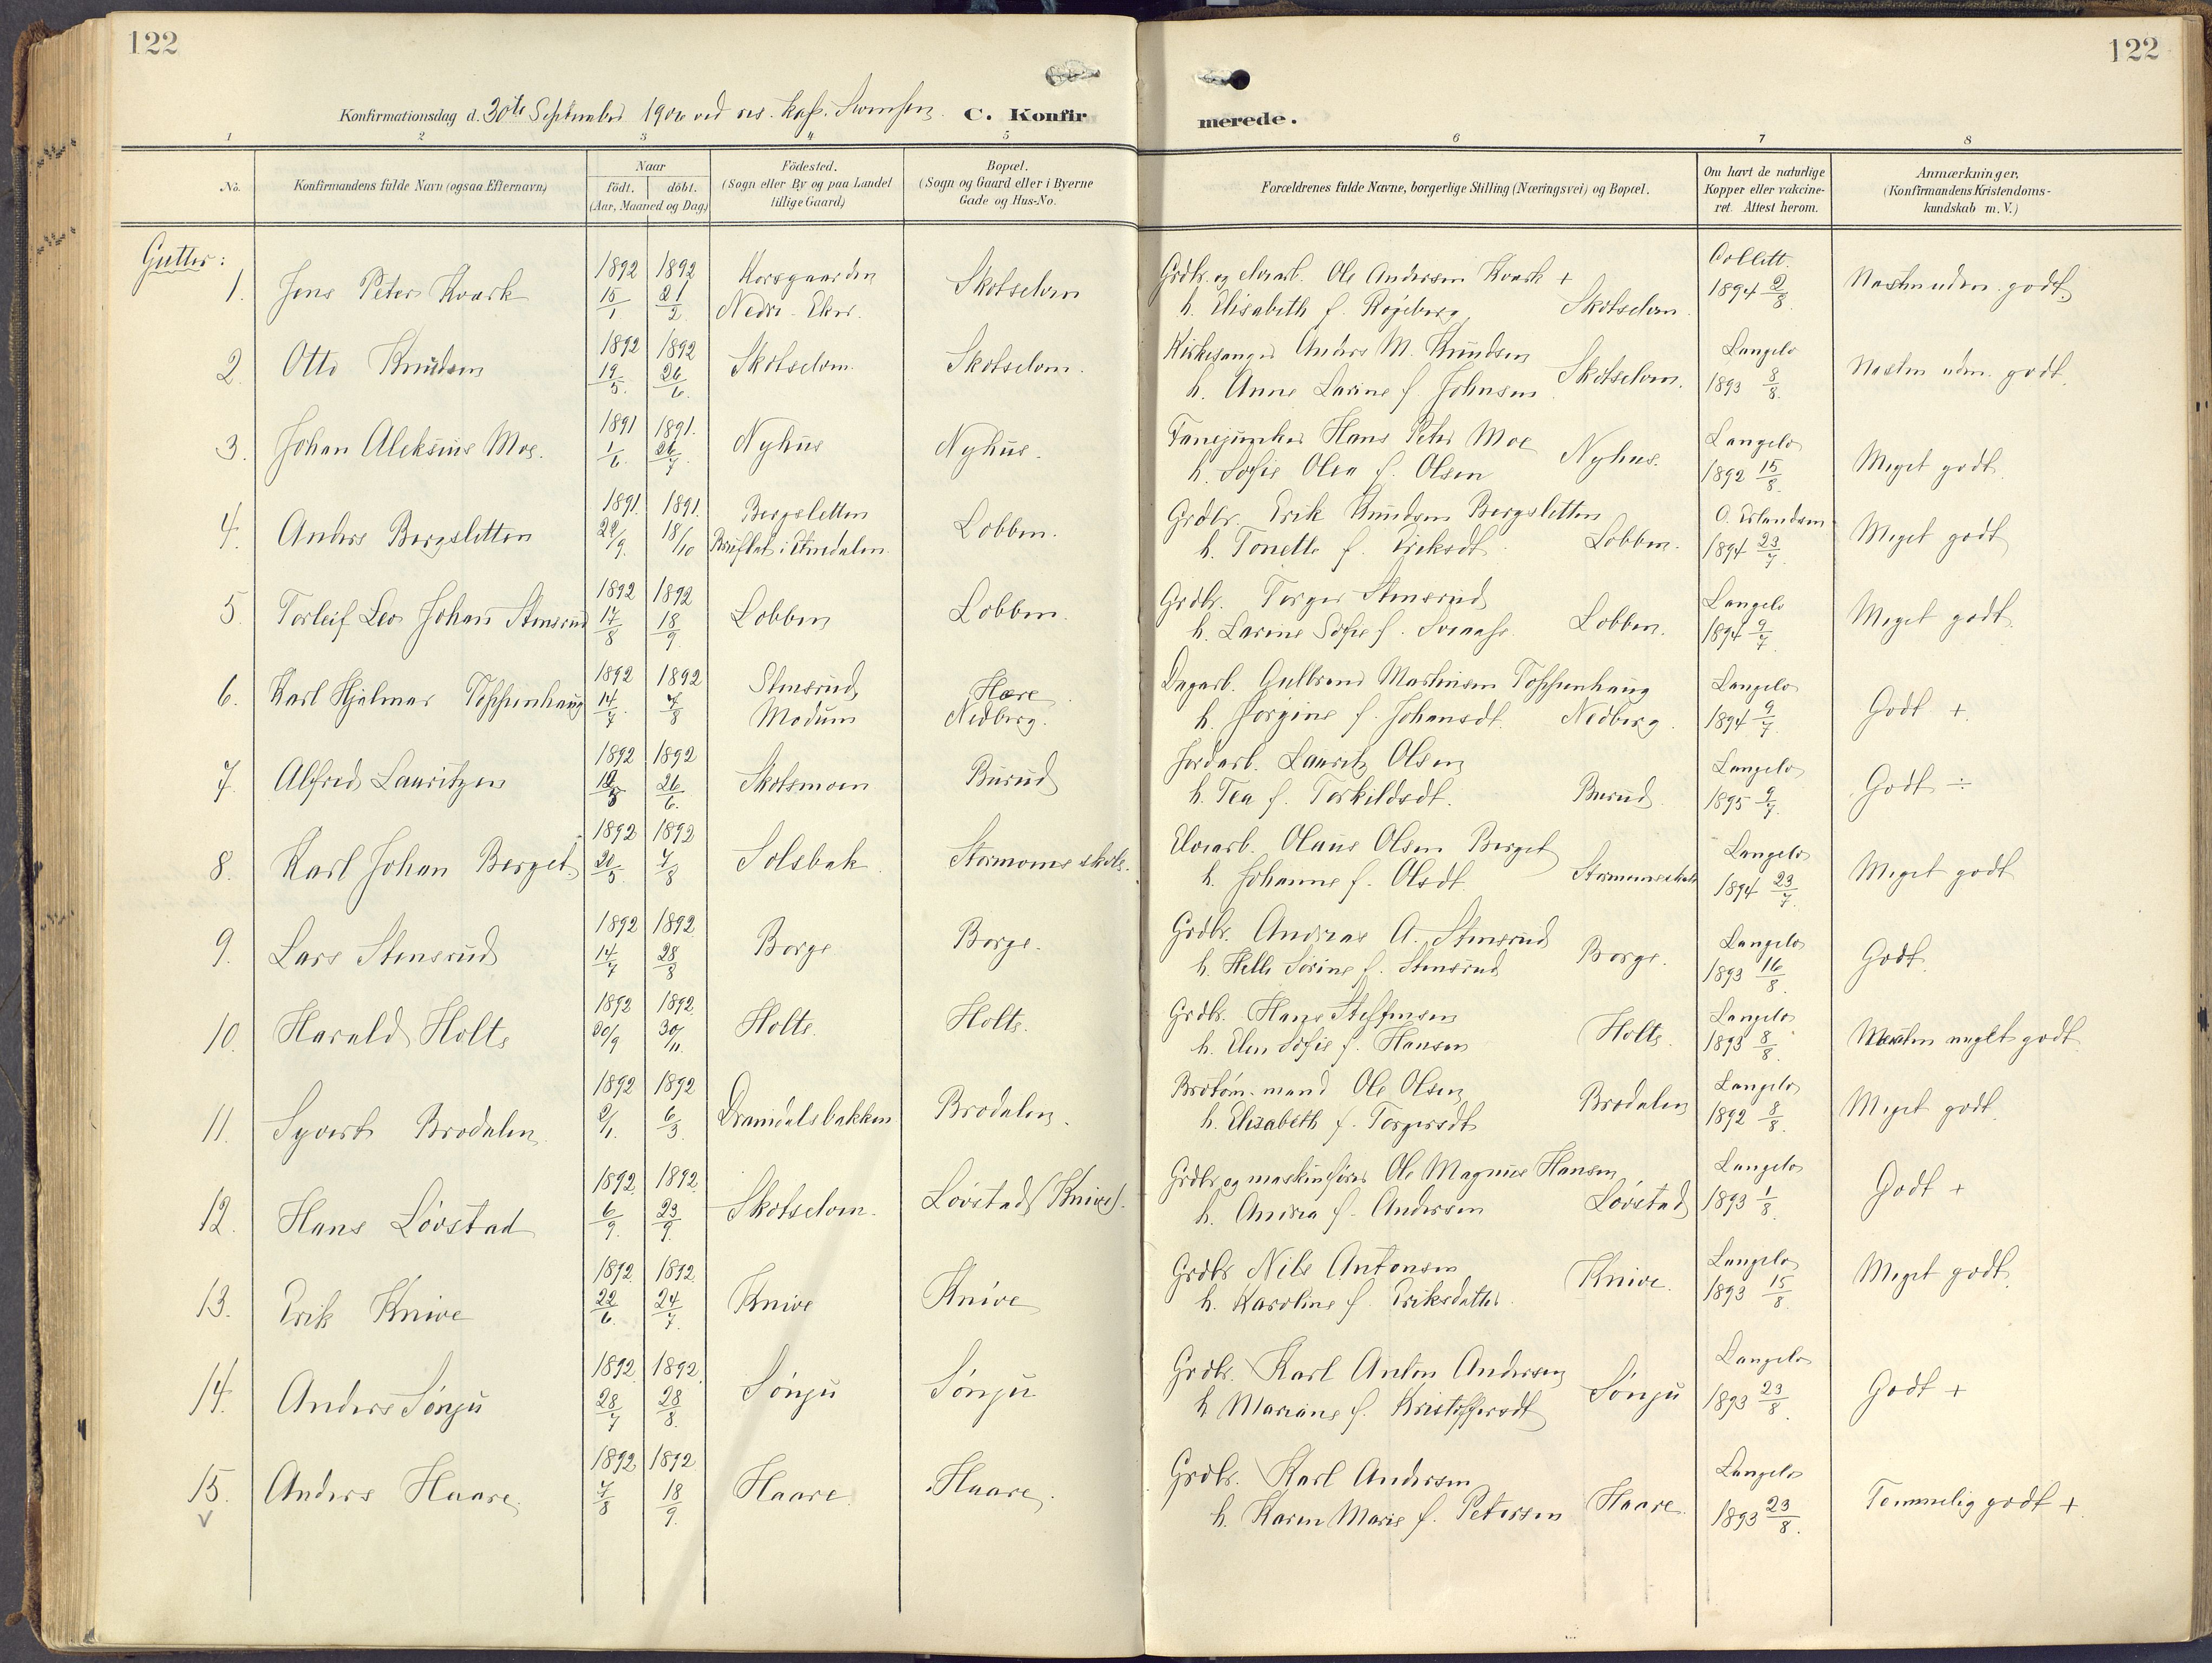 122
122
Konfirmationsdag d. 30te September 1906 ved res. kap. Svensen. C. Konfirmerede.
1 2 3 4 5 6 7 8
No.
Konfirmandens fulde Navn (ogsaa Efternavn)
Naar
födt. döbt.
(Aar, Maaned og Dag)
Födested.
(Sogn eller By og paa Landet
tillige Gaard)
Bopæl.
(Sogn og Gaard eller i Byerne
Gade og Hus-No.
Forældrenes fulde Navne, borgerlige Stilling (Næringsvei) og Bopæl.
Om havt de naturlige
Kopper eller vakcine-
ret. Attest herom.
Anmærkninger.
(Konfirmandens Kristendoms-
kundskab m. V.)
Gutter:
1. Jens Peter Kvark 1892 15/1 1892 21/2 Korsgaarden Nedre Eker. Skotselven Grdbr. og elvearb. Ole Andersen Kvark +
h. Elisabeth f. Röjeberg Skotselven. Collett. 1894 2/8 Næsten udm. godt.
2. Otto Knudsen 1892 19/5. 1892 26/6. Skotselven. Skotselven. Kirkesanger Anders M. Knudsen
h. Anne Larine f. Johnsen Skotselven. Langelo 1893 8/8. Næsten udm. godt.
3. Johan Aleksius Moe. 1891 1/6. 1891. 26/7. Nyhus Nyhus. Fanejunker Hans Peter Moe
h. Sofie Olea f. Olsen Nyhus. Langelo 1892 15/8. Meget godt.
4. Anders Bergsletten 1891. 22/9. 1891. 18/10 Bergsletten Bruflat i Etnedalen. Lobben. Grdbr. Erik Knudsen Bergsletten
h. Tonette f. Eriksdt. Lobben. O. Erlandsen 1894 23/7. Meget godt
5 Torleif Leo Johan Stensrud 1892 17/8 1892 18/9. Lobben Lobben. Grdbr. Torger Stensrud
h. Larine Sofie f. Lobben. Langelo 1894 9/7. Meget godt.
6. Karl Hjalmar Toppenhaug 1892 14/7. 1892 7/8 Stensrud Modum Hære Nedberg. Dagarb. Gulbrand Martinsen Toppenhaug
h. Jørgine f. Johansdt. Nedberg. Langelo 1894 9/7. Godt +
7. Alfred Lauritzen 1892 1892 26/6. Skotsmoen Burud Jordarb. Lauritz Olsen
h. Tea f. Torkildsdt. Burud. Langelo 1895 9/7. Godt ÷
8. Karl Johan Berget 1892 20/5. 1892 7/8 Solsbak. Stormoens skole. Elvearb. Olaus Olsen Berget
h. Johanne f. Olsdt. Stormoens skole Langelo 1894 23/7. Meget godt
9. Lars Stensrud 1892 14/7 1892 28/8 Borge Borge. Grdbr. Andreas A. Stensrud
h. Helle Sörine f. Stensrud Borge. Langelo 1893 16/8. Godt.
10. Harald Holte 1892 30/9 1892 30/11. Holte. Holte. Grdbr. Hans Steffensen
h. Elen Sofie f. Hansen Holte. Langelo 1893 8/8. Næsten meget godt.
11. Syvert Brodalen. 1892 2/1. 1892 6/3. Dramdalsbakken Brodalen. Brotöm. mand Ole Olsen
h. Elisabeth f. Torgersdt. Brodalen Langelo 1892 8/8. Meget godt.
12. Hans Lövstad 1892. 6/9. 1892. 23/9. Skotselven. Lövstad (Knive). Grdbr. og maskinförer Ole Magnus Hansen
h. Andrea f. Andersen Lövstad Langelo 1893 1/8. Godt +
13. Erik Knive 1892. 22/6. 1892. 24/7. Knive Knive Grdbr. Nils Antonsen
h. Karoline f. Eriksdatter. Knive. Langelo 1893 15/8. Meget godt.
14. Anders Sönju 1892. 28/7 1892. 28/8. Sönju Sönju Grdbr. Karl Anton Andersen
h. Mariane f. Kristoffersdt. Sönju Langelo 1893 23/8. Godt +
15. Anders Haare. 1892 7/8 1892 18/9. Haare. Haare. Grdbr. Karl Andersen
h. Karen Marie f. Petersen Haare. Langelo 1893 23/8. Temmelig godt +
v